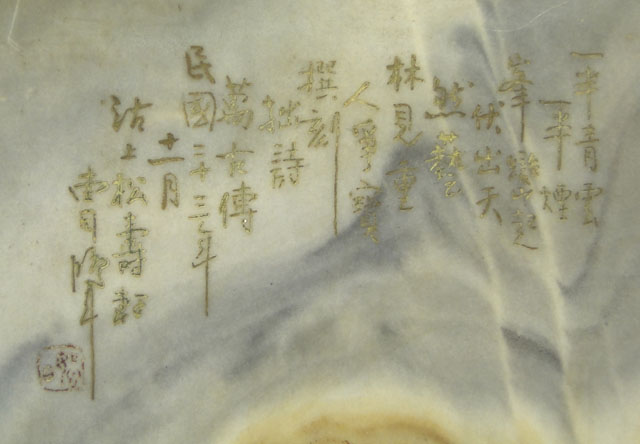 一半青雲
一半煙
峯巒起
伏出天
然藝
林見重
人爭寶
撰刻
拙詩
萬古傳
民國三十三年
十一月
沽上松壽軒